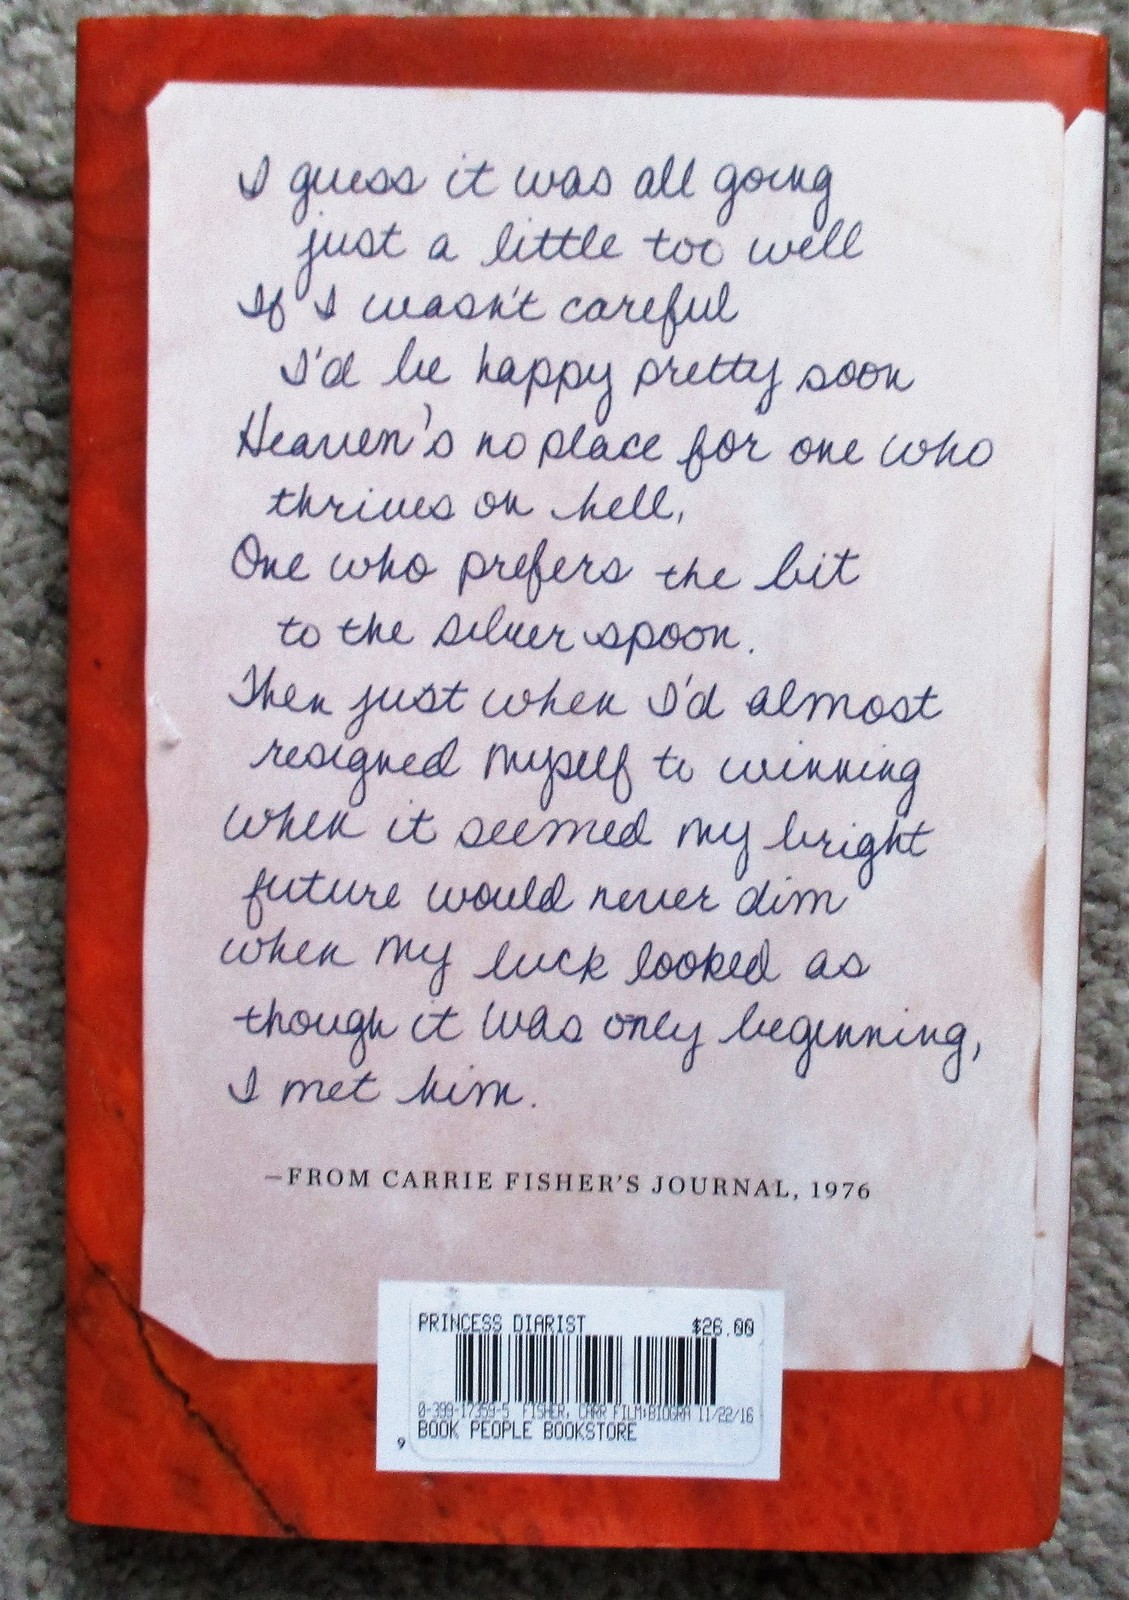 I guess it was all going
just a little too well
If I wasn't careful
I'd be happy pretty soon
Heaven's no place for one who
thrives on hell,
One who prefers the bit
to the silver spoon.
Then just when I'd almost
resigned myself to winning
when it seemed my bright
future would never dim
when my luck looked as
though it was only beginning,
I met him.
—FROM CARRIE FISHER'S JOURNAL, 1976
PRINCESS DIARIST $26.00
0-399-17359-5 FISHER, CARR FILM:BIOGRA 11/22/16
BOOK PEOPLE BOOKSTORE
9